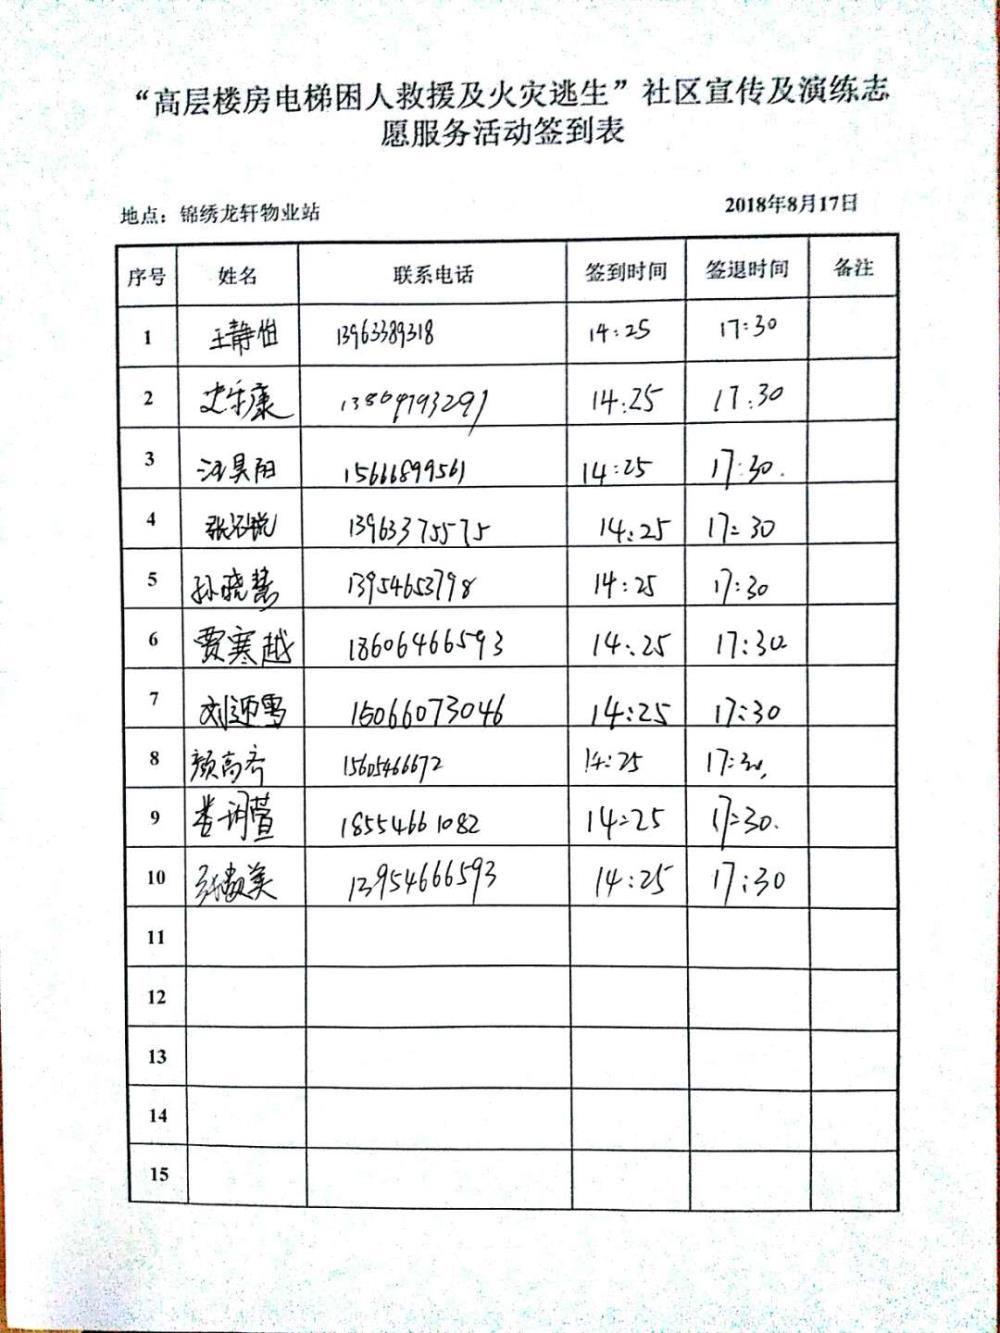 “高层楼房电梯困人救援及火灾逃生”社区宣传及演练志
愿服务活动签到表
地点：锦绣龙轩物业站 2018年8月17日
序号 姓名 联系电话 签到时间 签退时间 备注
1 王静怡 13963389318 14:25 17:30
2 史乐康 13869793291 14:25 17:30
3 汪昊阳 15666899561 14:25 17:30.
4 13963375575 14:25 17:30
5 孙晓慧 13954653798 14:25 17:30
6 贾寒越 18606466593 14:25 17:30
7 15066073046 14:25 17:30
8 颜高齐 15605466672 14:25 17:30.
9 18554661082 14:25 17:30.
10 13954666593 14:25 17:30
11
12
13
14
15